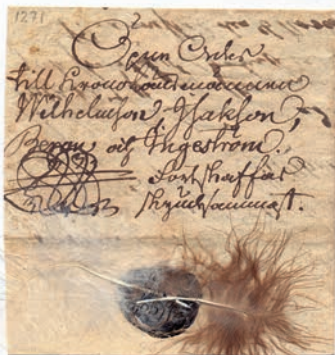 1271
Open Order
till Cronolänsmännerne
Wilhelmson, Isakson,
Bergn, och Ingeström.,
Fortskaffas
skyndsammast.